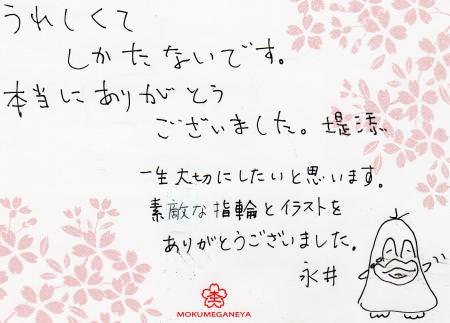 うれしくて
しかたないです。
本当にありがとう
ございました。堤添
一生大切にしたいと思います。
素敵な指輪とイラストを
ありがとうございました。
永井
杢
MOKUMEGANEYA